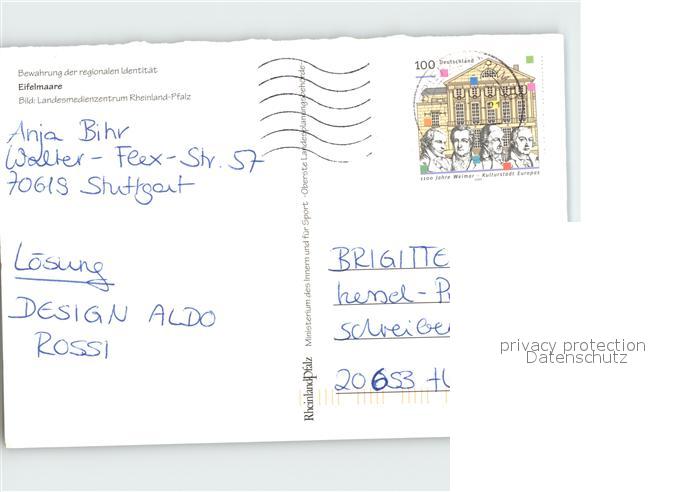 Bewahrung der regionalen Identität
Eifelmaare
Bild: Landesmedienzentrum Rheinland-Pfalz
Anja Bihr
Walter-Flex-Str. 57
70619 Stuttgart
Lösung
DESIGN ALDO
ROSSI
RheinlandPfalz Ministerium des Innern und für Sport - Oberste Landesplanungsbehörde
100 Deutschland
1100 Jahre Weimar - Kulturstadt Europas
BRIGITTE
schreiber
20653
privacy protection
Datenschutz